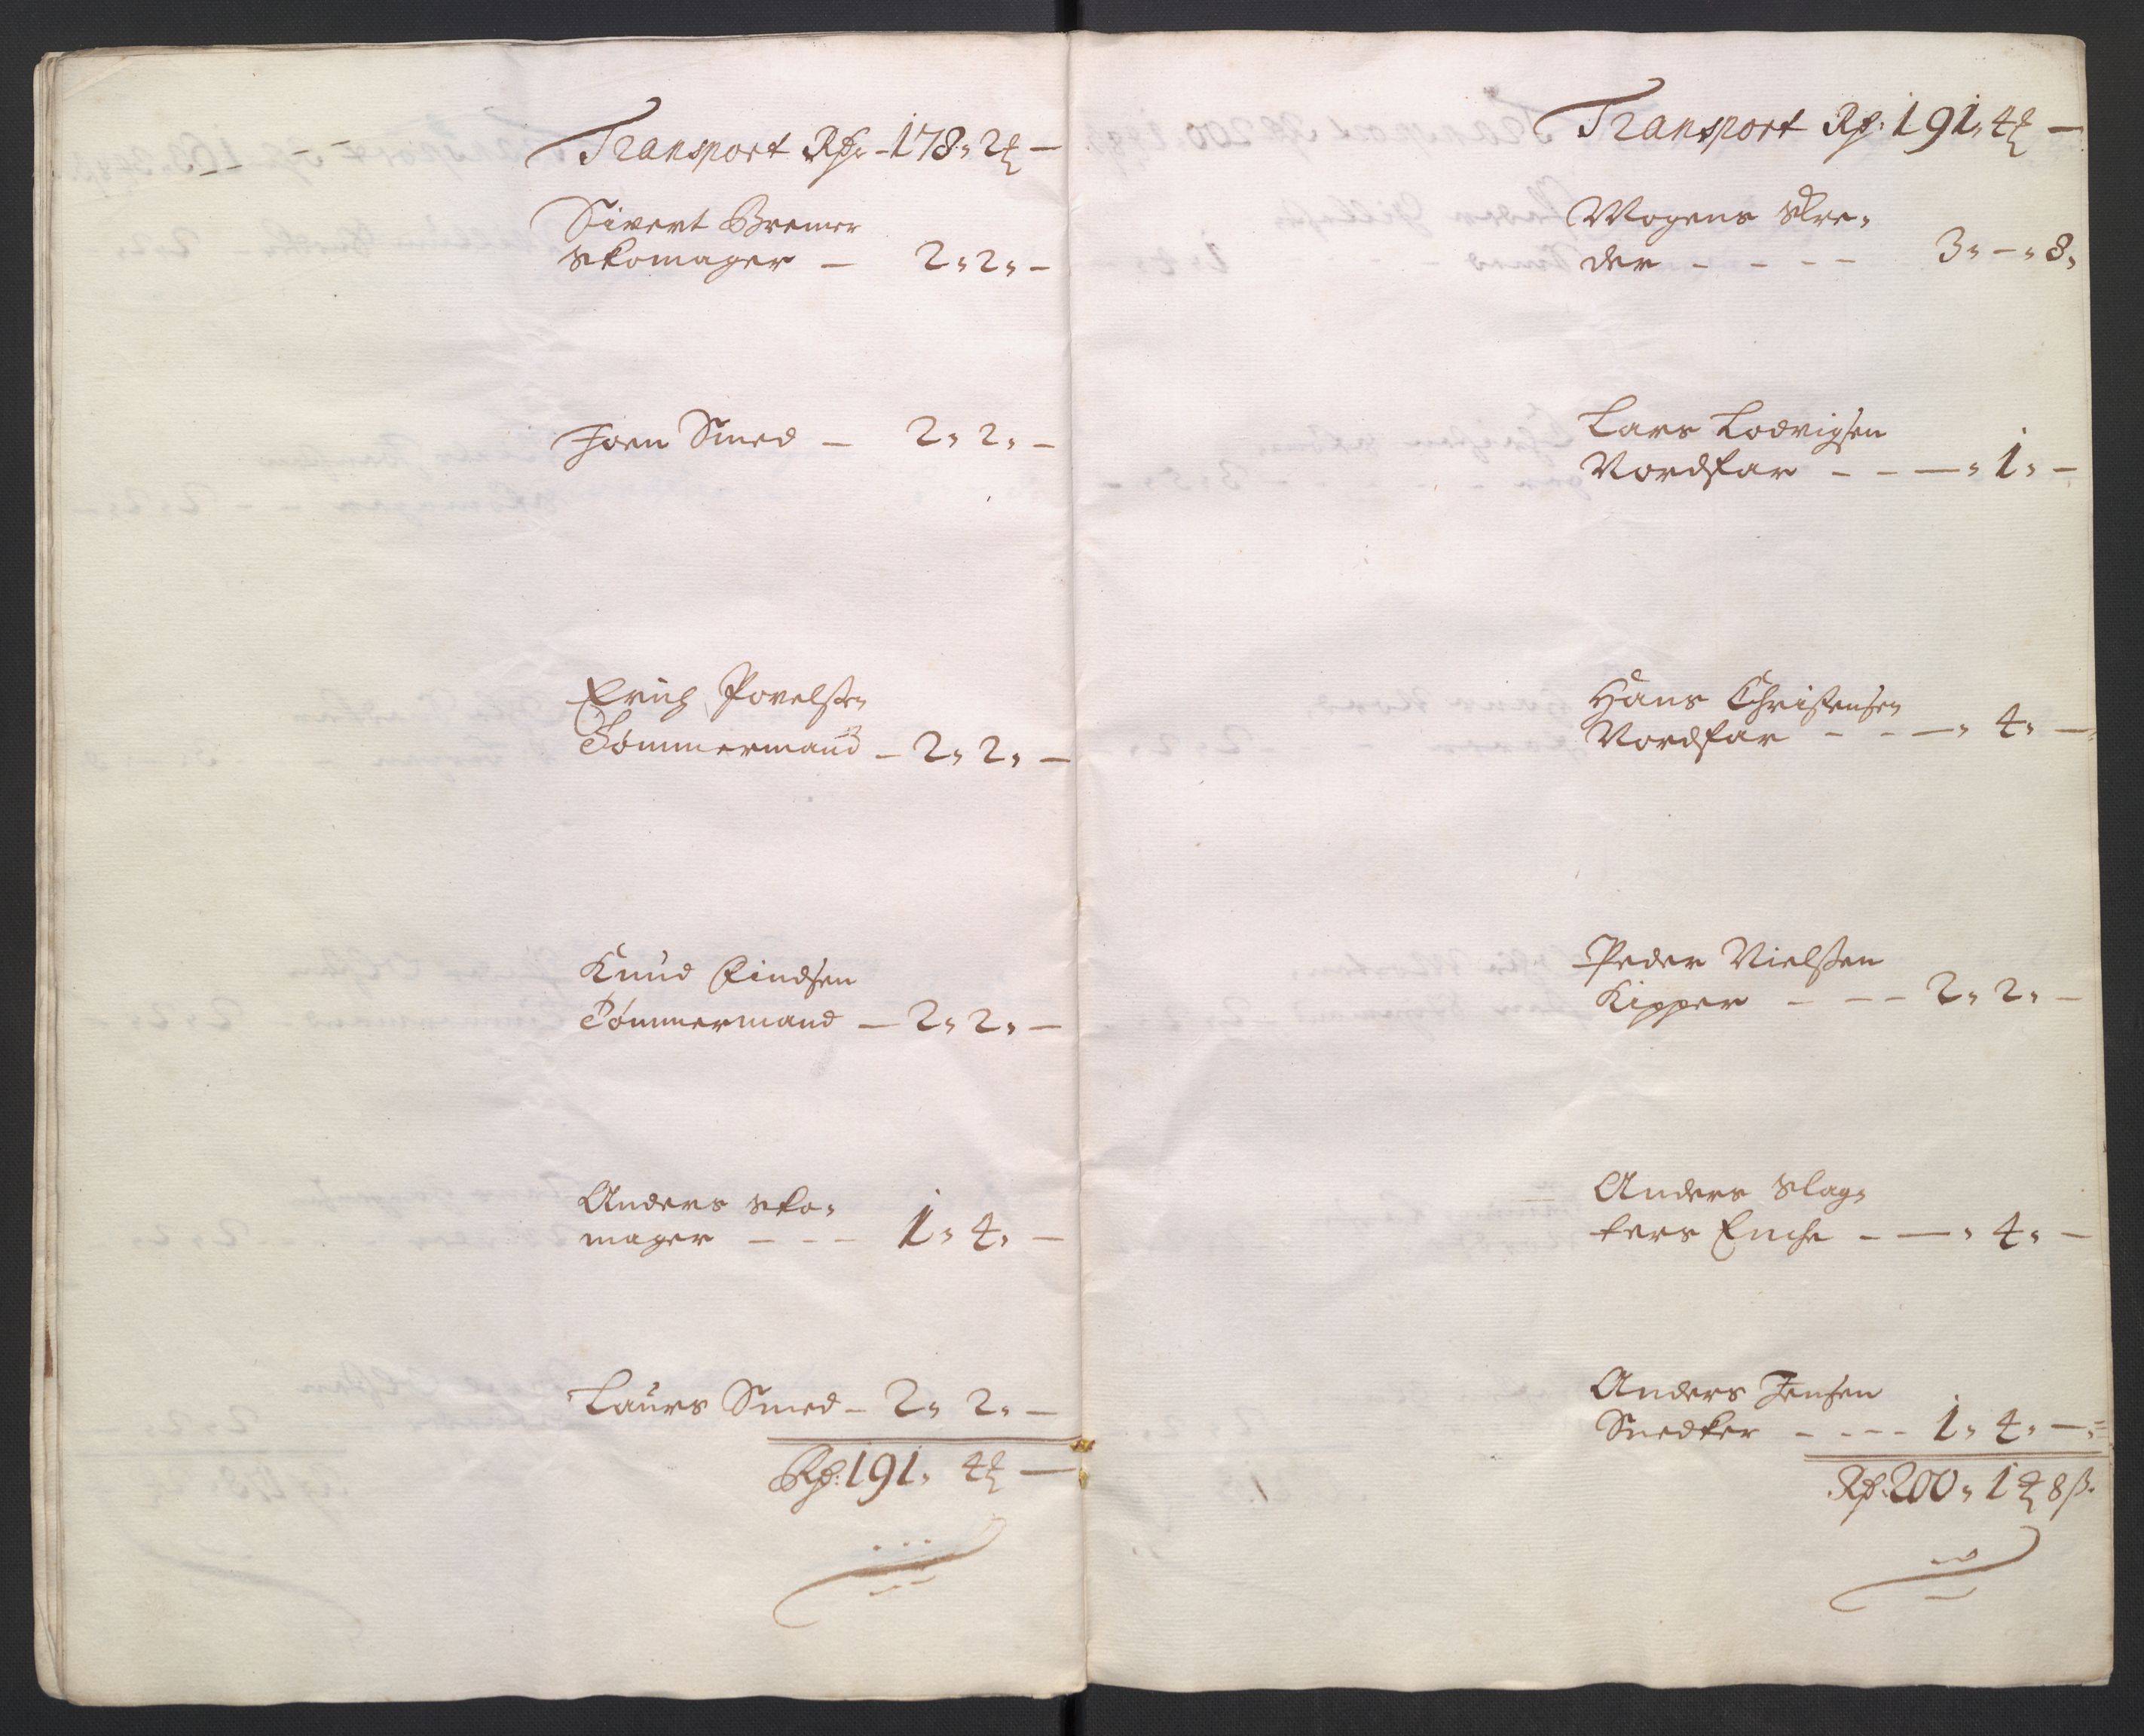 Transport Rdr - 178 " 2 ₰ —
Sivert Bremer
skomager — 2 " 2 " —
Joen Smed — 2 " 2 " —
Erich Povelsen
Tømmermand — 2 " 2 " —
Knud Eindsen
Tømmermand — 2 " 2 " —
Anders sko-
mager — — — 1 " 4 " —
Laurs Smed — 2 " 2 " —
Rd: 191 " 4 ₰ —
Transport Rd: 191 " 4 ₰ —
Mogens skre-
der — — — — 3 " — " 8 "
Lars Lodvigsen
Nordfar — — — " 1 " —
Hans Christensen
Nordfar — — — " 4 " —
Peder Nielsen
Kipper — — — 2 " 2 " —
Anders slag-
ters Enche — — " 4 " —
Anders Jensen
Snedker — — — — 1 " 4 " —
Rd: 200 " 1 ₰ 8 ß.